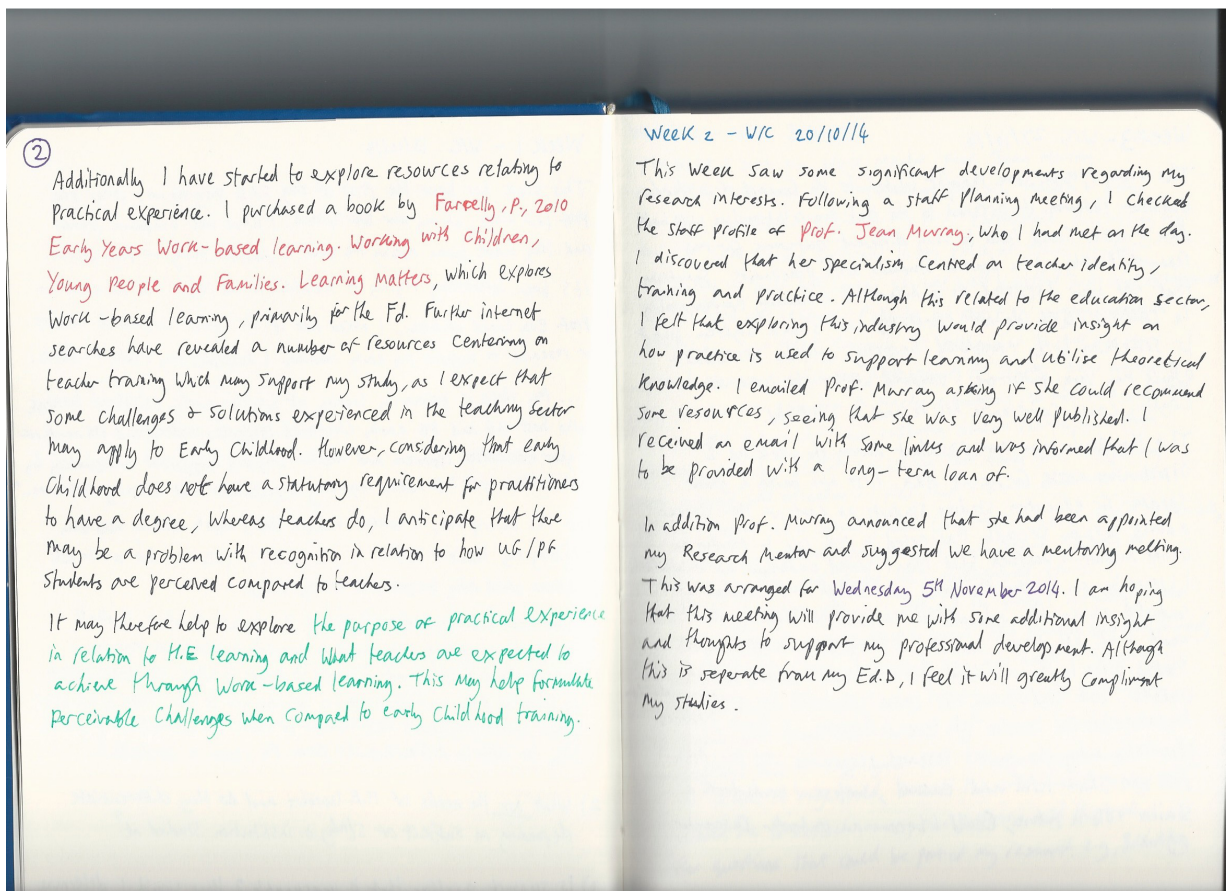 2
Additionally I have started to explore resources relating to
Practical experience. I purchased a book by Farrelly, P., 2010
Early Years Work-based learning. Working with Children,
Young People and Families. Learning Matters, which explores
Work-based learning, primarily for the Fd. Further internet
searches have revealed a number of resources centering on
teacher training which may support my study, as I expect that
some challenges & solutions experienced in the teaching sector
may apply to Early Childhood. However, considering that early
Childhood does not have a statutory requirement for practitioners
to have a degree, whereas teachers do, I anticipate that there
may be a problem with recognition in relation to how UG/PG
students are perceived compared to teachers.
It may therefore help to explore the purpose of practical experience
in relation to H.E learning and what teachers are expected to
achieve through work-based learning. This may help formulate
perceivable challenges when compaed to early Childhood training.
Week 2 - W/C 20/10/14
This Week saw some significant developments regarding my
research interests. Following a staff planning meeting, I checked
the staff profile of Prof. Jean Murray, who I had met on the day.
I discovered that her specialism centred on teacher identity,
training and practice. Although this related to the education sector,
I felt that exploring this industry would provide insight on
how practice is used to support learning and utilise theoretical
knowledge. I emailed Prof. Murray asking if she could recommend
some resources, seeing that she was very well published. I
received an email with some links and was informed that I was
to be provided with a long-term loan of.
In addition Prof. Murray announced that she had been appointed
my Research Mentor and suggested we have a mentoring meeting.
This was arranged for Wednesday 5th November 2014. I am hoping
that this meeting will provide me with some additional insight
and thoughts to support my professional development. Although
this is seperate from my Ed.D, I feel it will greatly compliment
my studies.